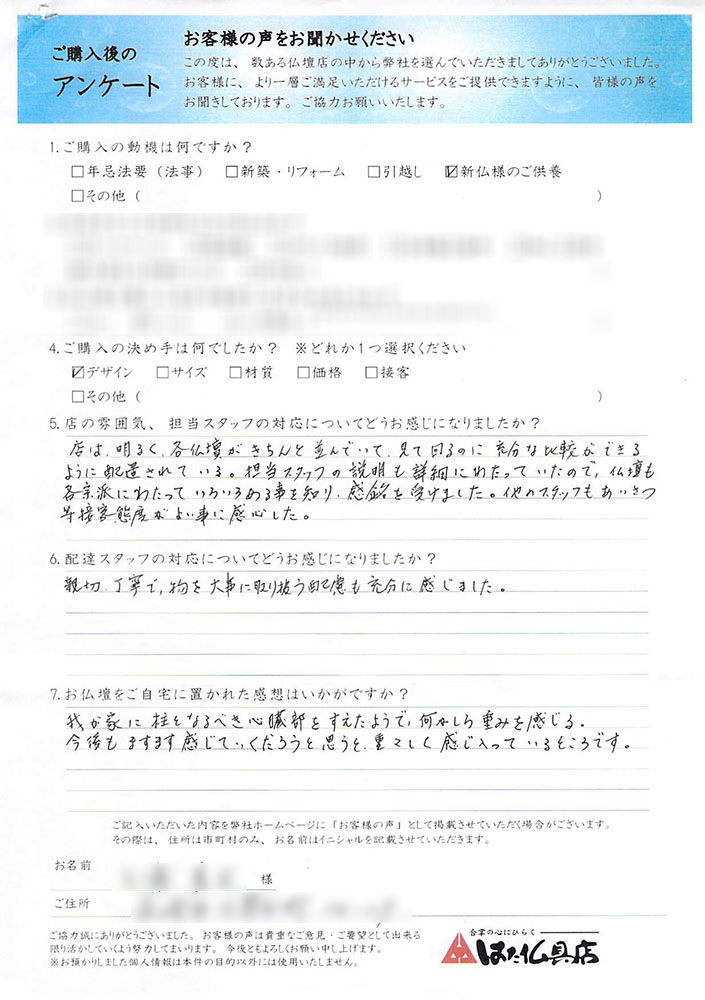 ご購入後の
アンケート
お客様の声をお聞かせください
この度は、数ある仏壇店の中から弊社を選んでいただきましてありがとうございました。
お客様に、より一層ご満足いただけるサービスをご提供できますように、皆様の声を
お聞きしております。ご協力お願いいたします。
1.ご購入の動機は何ですか？
□年忌法要（法事） □新築・リフォーム □引越し ☑新仏様のご供養
□その他（ ）
4.ご購入の決め手は何でしたか？ ※どれか1つ選択ください
☑デザイン □サイズ □材質 □価格 □接客
□その他（ ）
5.店の雰囲気、担当スタッフの対応についてどうお感じになりましたか？
店は、明るく、各仏壇がきちんと並んでいて、見て回るのに充分な比較ができる
ように配置されている。担当スタッフの説明も詳細にわたっていたので、仏壇も
各宗派にわたっていろいろある事を知り、感銘を受けました。他のスタッフもあいさつ
等接客態度がよい事に感心した。
6.配達スタッフの対応についてどうお感じになりましたか？
親切、丁寧で、物を大事に取り扱う配慮も充分に感じました。
7.お仏壇をご自宅に置かれた感想はいかがですか？
我が家に柱となるべき心臓部をすえたようで、何かしら重みを感じる。
今後もますます感じていくだろうと思うと、重々しく感じ入っているところです。
ご記入いただいた内容を弊社ホームページに「お客様の声」として掲載させていただく場合がございます。
その際は、住所は市町村のみ、お名前はイニシャルを記載させていただきます。
お名前
様
ご住所
ご協力誠にありがとうございました。お客様の声は貴重なご意見・ご要望として出来る
限り活かしていくよう努力してまいります。今後ともよろしくお願い申し上げます。
※お預かりしました個人情報は本件の目的以外には使用いたしません。
合掌の心にひらく
はた仏具店